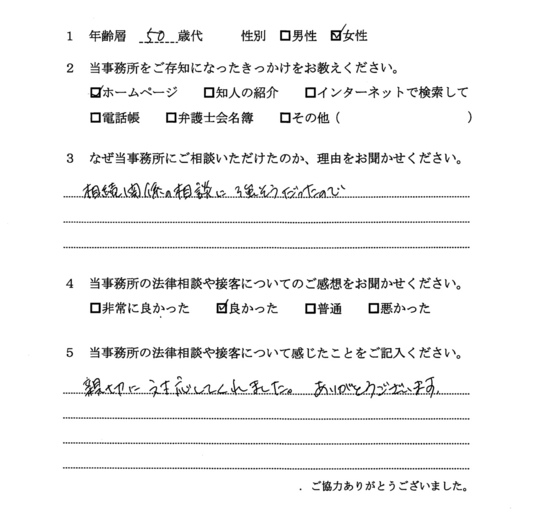 1 年齢層 50 歳代 性別 □男性 ☑女性
2 当事務所をご存知になったきっかけをお教えください。
☑ホームページ □知人の紹介 □インターネットで検索して
□電話帳 □弁護士会名簿 □その他( )
3 なぜ当事務所にご相談いただけたのか、理由をお聞かせください。
相続関係の相談に強そうだったので
4 当事務所の法律相談や接客についてのご感想をお聞かせください。
□非常に良かった ☑良かった □普通 □悪かった
5 当事務所の法律相談や接客について感じたことをご記入ください。
親切に対応してくれました。ありがとうございます。
ご協力ありがとうございました。